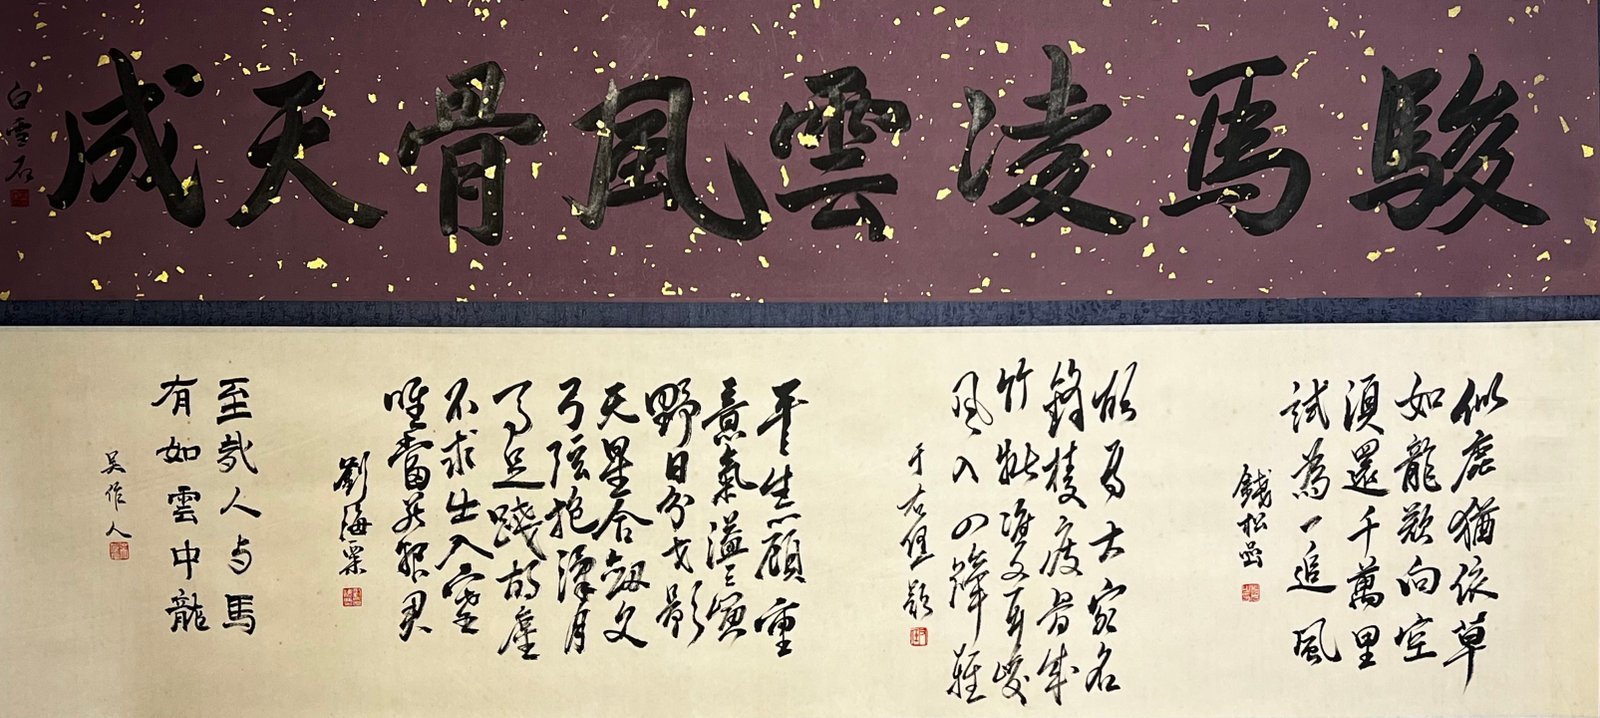 駿馬凌雲風骨天成
白雪石
似鹿猶依草
如龍欲向空
須還千萬里
試為一追風
錢松喦
胡馬大宛名
鋒棱瘦骨成
竹批雙耳峻
風入四蹄輕
于右任題
平生一顧重
意氣溢三軍
野日分戈影
天星合劍文
弓弦抱漢月
馬足踐胡塵
不求生入塞
唯當死報君
劉海粟
至哉人与馬
有如雲中龍
吴作人